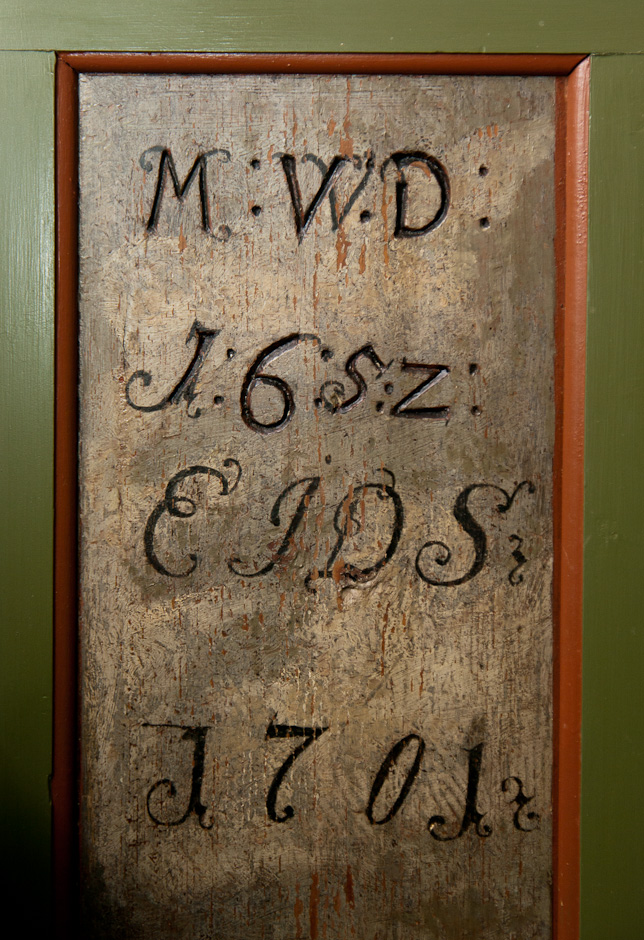 M:W.D:
1:6:5:2:
EIDS
1701